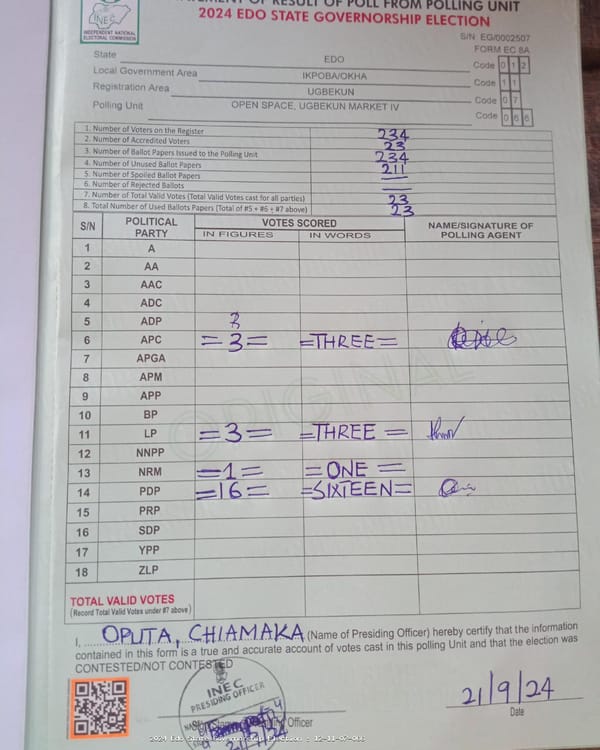 STATEMENT OF RESULT OF POLL FROM POLLING UNIT
2024 EDO STATE GOVERNORSHIP ELECTION
INEC
INDEPENDENT NATIONAL ELECTORAL COMMISSION
S/N: EG/0002507
FORM EC 8A
State EDO Code 0 1 2
Local Government Area IKPOBA/OKHA Code 1 1
Registration Area UGBEKUN Code 0 7
Polling Unit OPEN SPACE, UGBEKUN MARKET IV Code 0 6 6
1. Number of Voters on the Register 234
2. Number of Accredited Voters 23
3. Number of Ballot Papers Issued to the Polling Unit 234
4. Number of Unused Ballot Papers 211
5. Number of Spoiled Ballot Papers
6. Number of Rejected Ballots
7. Number of Total Valid Votes (Total Valid Votes cast for all parties) 23
8. Total Number of Used Ballots Papers (Total of #5 + #6 + #7 above) 23
S/N POLITICAL PARTY VOTES SCORED NAME/SIGNATURE OF POLLING AGENT
IN FIGURES IN WORDS
1 A
2 AA
3 AAC
4 ADC
5 ADP 3
6 APC =3= =THREE=
7 APGA
8 APM
9 APP
10 BP
11 LP =3= =THREE=
12 NNPP
13 NRM =1= =ONE=
14 PDP =16= =SIXTEEN=
15 PRP
16 SDP
17 YPP
18 ZLP
ORIGINAL
TOTAL VALID VOTES
(Record Total Valid Votes under #7 above)
I, OPUTA, CHIAMAKA (Name of Presiding Officer) hereby certify that the information
contained in this form is a true and accurate account of votes cast in this polling Unit and that the election was
CONTESTED/NOT CONTESTED
INEC
PRESIDING OFFICER
Officer
21/9/24
Date